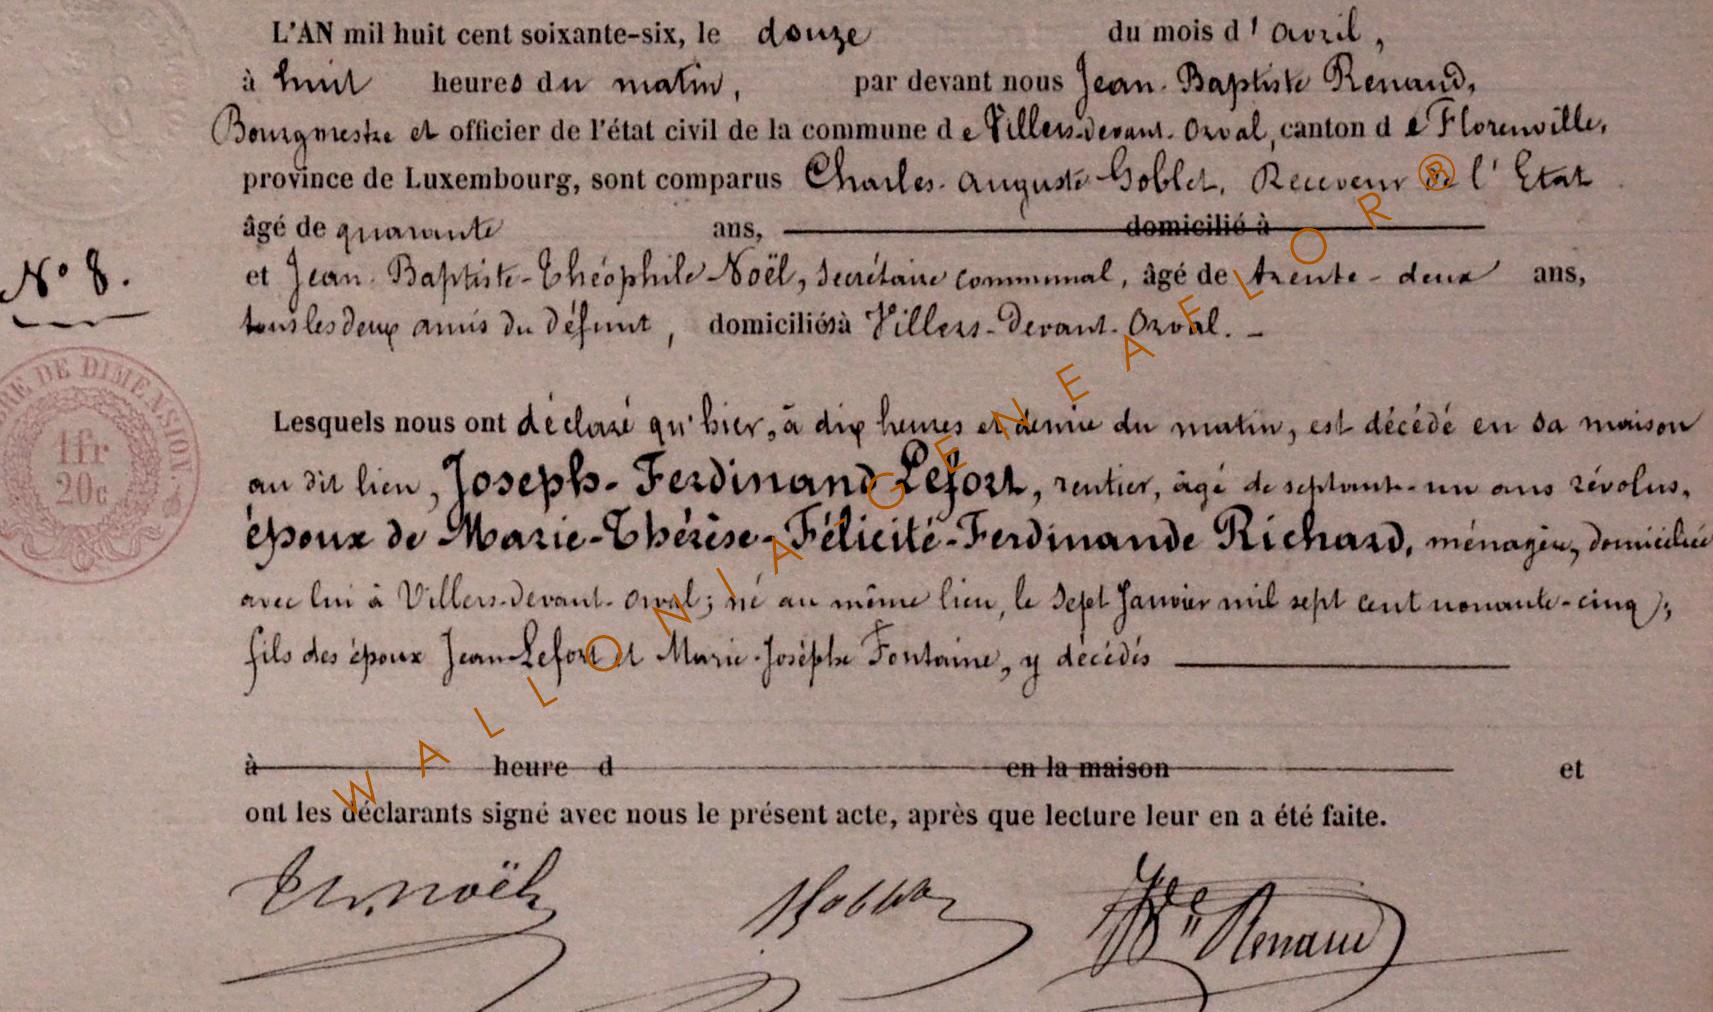 L'AN mil huit cent soixante-six, le douze du mois d'avril,
à huit heures du matin, par devant nous Jean-Baptiste Renaud,
Bourgmestre et officier de l'état civil de la commune de Villers-devant-Orval, canton de Florenville,
province de Luxembourg, sont comparus Charles-Auguste Goblet, Receveur de l'Etat
âgé de quarante ans, domicilié à
N° 8.
et Jean-Baptiste-Théophile Noël, secrétaire communal, âgé de trente-deux ans,
tous les deux amis du défunt, domiciliés à Villers-devant-Orval.
Lesquels nous ont déclaré qu'hier, à dix heures et demie du matin, est décédé en sa maison
au dit lieu, Joseph-Ferdinand Lefort, rentier, âgé de septante-un ans révolus,
époux de Marie-Thérèse-Félicité-Ferdinande Richard, ménagère, domiciliée
avec lui à Villers-devant-Orval; né au même lieu, le sept Janvier mil sept cent nonante-cinq;
fils des époux Jean Lefort et Marie-Josèphe Fontaine, y décédés
à heure d en la maison et
ont les déclarants signé avec nous le présent acte, après que lecture leur en a été faite.
Th. Noël Goblet JBte Renaud
DE DIMENSION.
1fr
20c
WALLONIA-GENEAFLOR®